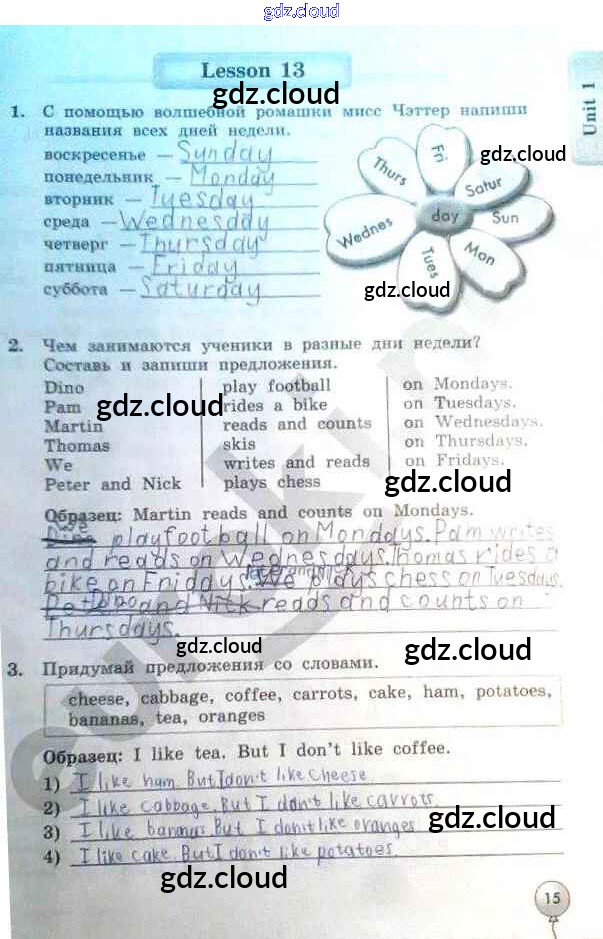 gdz.cloud
Lesson 13
Unit 1
1. С помощью волшебной ромашки мисс Чэттер напиши
названия всех дней недели.
gdz.cloud
воскресенье — Sunday
понедельник — Monday
вторник — Tuesday
среда — Wednesday
четверг — Thursday
пятница — Friday
суббота — Saturday
Fri
Thurs
Satur
Wednes
day
Sun
Tues
Mon
gdz.cloud
gdz.cloud
2. Чем занимаются ученики в разные дни недели?
Составь и запиши предложения.
Dino play football on Mondays.
Pam rides a bike on Tuesdays.
Martin reads and counts on Wednesdays.
Thomas skis on Thursdays.
We writes and reads on Fridays.
Peter and Nick plays chess
gdz.cloud
gdz.cloud
Образец: Martin reads and counts on Mondays.
We
play football on Mondays. Pam writes
and reads on Wednesdays. Thomas rides a
bike on Fridays. We plays chess on Tuesdays.
Dino and Nick reads and counts on
Thursdays.
gdz.cloud
gdz.cloud
3. Придумай предложения со словами.
cheese, cabbage, coffee, carrots, cake, ham, potatoes,
bananas, tea, oranges
Образец: I like tea. But I don't like coffee.
1) I like ham. But I don't like cheese
2) I like cabbage. But I don't like carrots.
3) I like bananas But I don't like oranges
4) I like cake But I don't like potatoes.
gdz.cloud
gdz.cloud
15